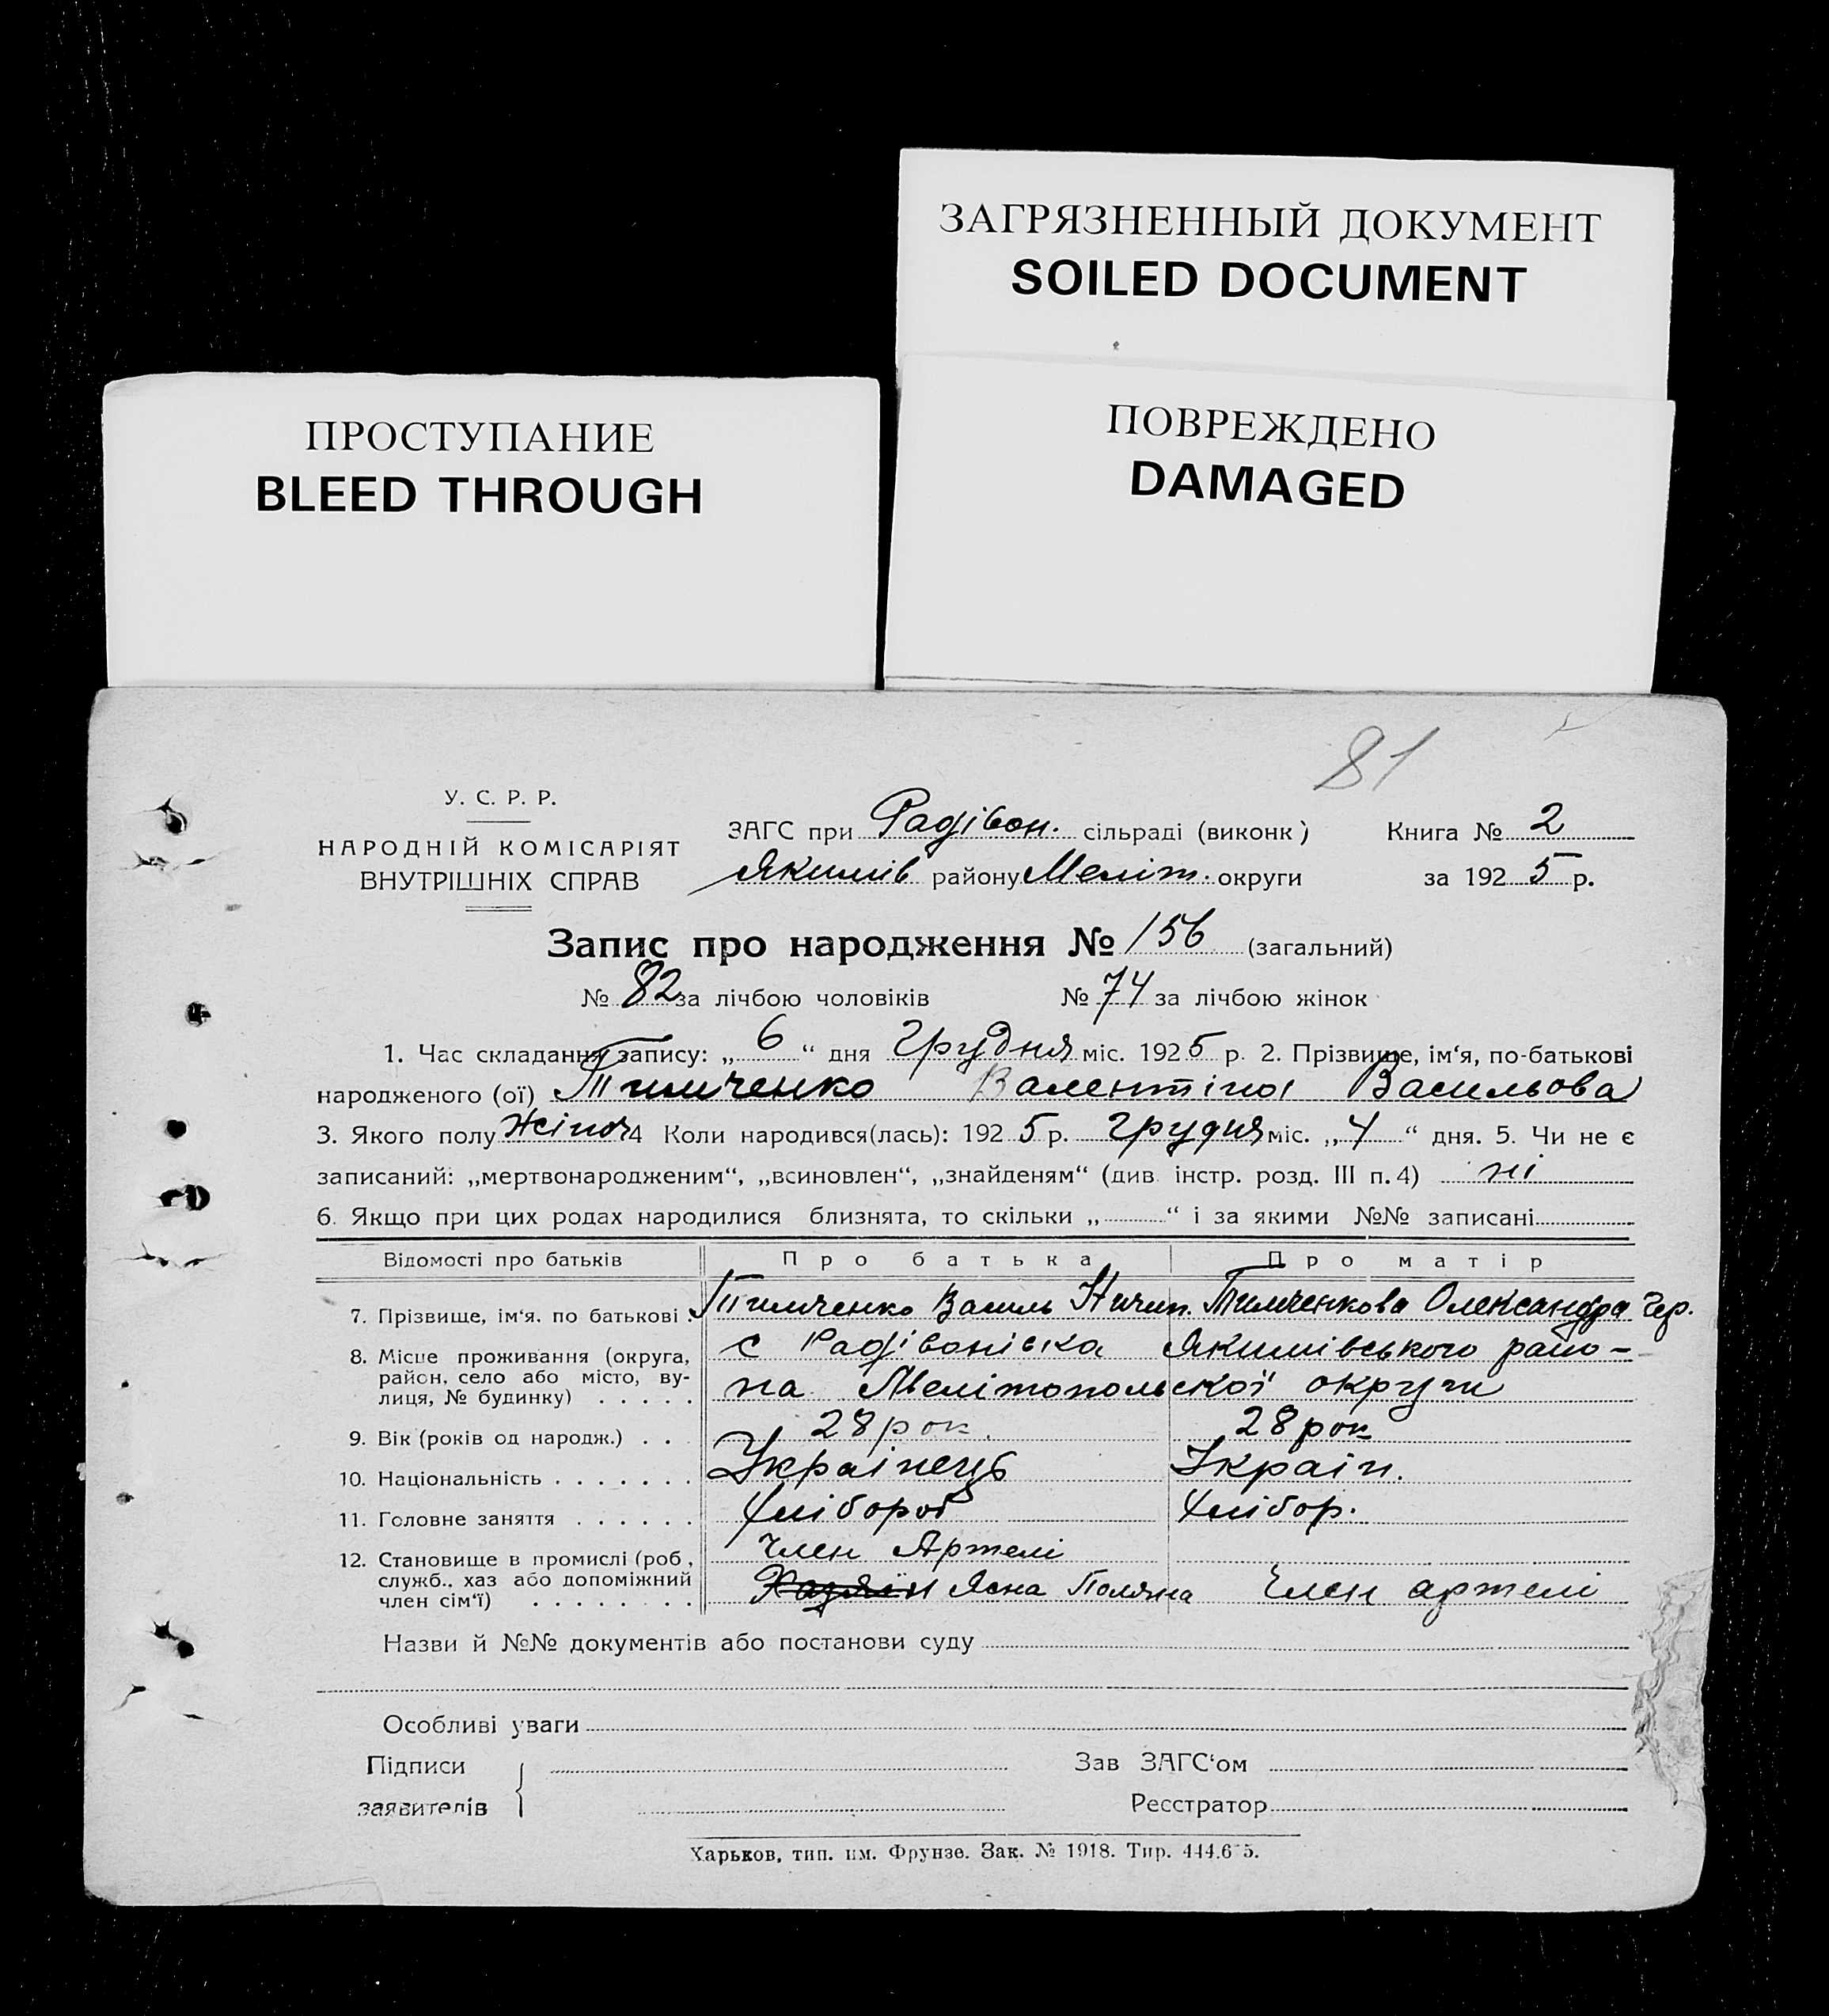 ЗАГРЯЗНЕННЫЙ ДОКУМЕНТ
SOILED DOCUMENT
ПРОСТУПАНИЕ
BLEED THROUGH
ПОВРЕЖДЕНО
DAMAGED
81
У. С. Р. Р.
НАРОДНІЙ КОМІСАРІЯТ
ВНУТРІШНІХ СПРАВ
ЗАГС при Радівон. сільраді (виконк) Книга № 2
Якимів району Меліт. округи за 1925 р.
Запис про народження № 156 (загальний)
№ 82 за лічбою чоловіків № 74 за лічбою жінок
1. Час складання запису: „6“ дня Грудня міс. 1925 р. 2. Прізвище, ім‘я, по-батькові
народженого (ої) Тимченко Валентіна Васильова
3. Якого полу жіноч 4 Коли народився(лась): 1925 р. Грудня міс. „4“ дня. 5. Чи не є
записаний: „мертвонародженим“, „всиновлен“, „знайденям“ (див. інстр. розд. III п. 4) ні
6. Якщо при цих родах народилися близнята, то скільки „ “ і за якими №№ записані
Відомості про батьків Про батька Про матір
7. Прізвище, ім‘я. по батькові Тимченко Василь Ничип. Тимченкова Олександра Гер.
8. Місце проживання (округа, район, село або місто, вулиця, № будинку) с Радівонівка Якимівського райо-
на Мелітопольської округи
9. Вік (років од народж.) 28 рок. 28 рок
10. Національність Українець Україн.
11. Головне заняття Хлібороб Хлібор.
12. Становище в промислі (роб, служб., хаз або допоміжний член сім‘ї) Член Артелі
Хазяїн Ясна Поляна Член артелі
Назви й №№ документів або постанови суду
Особливі уваги
Підписи заявителів Зав ЗАГС‘ом
Реєстратор
Харьков, тип. им. Фрунзе. Зак. № 1918. Тир.